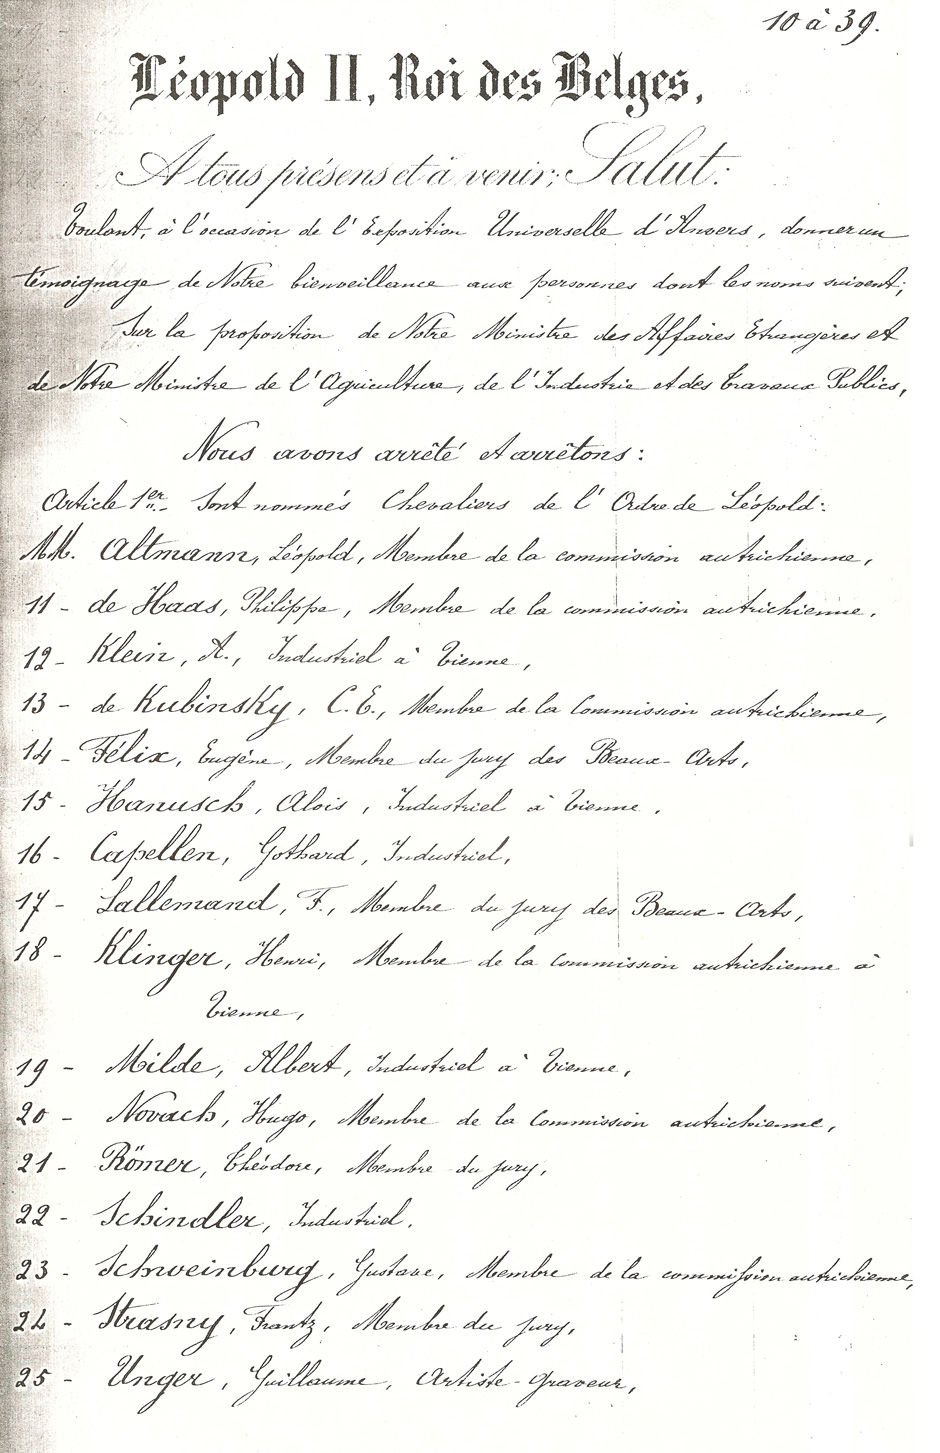 10 à 39.
Léopold II, Roi des Belges,
A tous présens et à venir, Salut:
Voulant, à l'occasion de l'Exposition Universelle d'Anvers, donner un
témoignage de Notre bienveillance aux personnes dont les noms suivent;
Sur la proposition de Notre Ministre des Affaires Etrangères et
de Notre Ministre de l'Agriculture, de l'Industrie et des Travaux Publics,
Nous avons arrêté et arrêtons:
Article 1er. Sont nommés Chevaliers de l'Ordre de Léopold:
MM. Altmann, Léopold, Membre de la commission autrichienne,
11 - de Haas, Philippe, Membre de la commission autrichienne.
12 - Klein, A., Industriel à Vienne,
13 - de Kubinsky, C.E., Membre de la Commission autrichienne,
14 - Félix, Eugène, Membre du jury des Beaux-Arts,
15 - Hanusch, Alois, Industriel à Vienne.
16 - Capellen, Gothard, Industriel,
17 - Lallemand, F., Membre du jury des Beaux-Arts,
18 - Klinger, Henri, Membre de la Commission autrichienne à
Vienne,
19 - Milde, Albert, Industriel à Vienne,
20 - Novach, Hugo, Membre de la Commission autrichienne,
21 - Römer, Théodore, Membre du jury,
22 - Schindler, Industriel.
23 - Schweinburg, Gustave, Membre de la commission autrichienne,
24 - Strasny, Frantz, Membre du jury,
25 - Unger, Guillaume, Artiste-graveur,